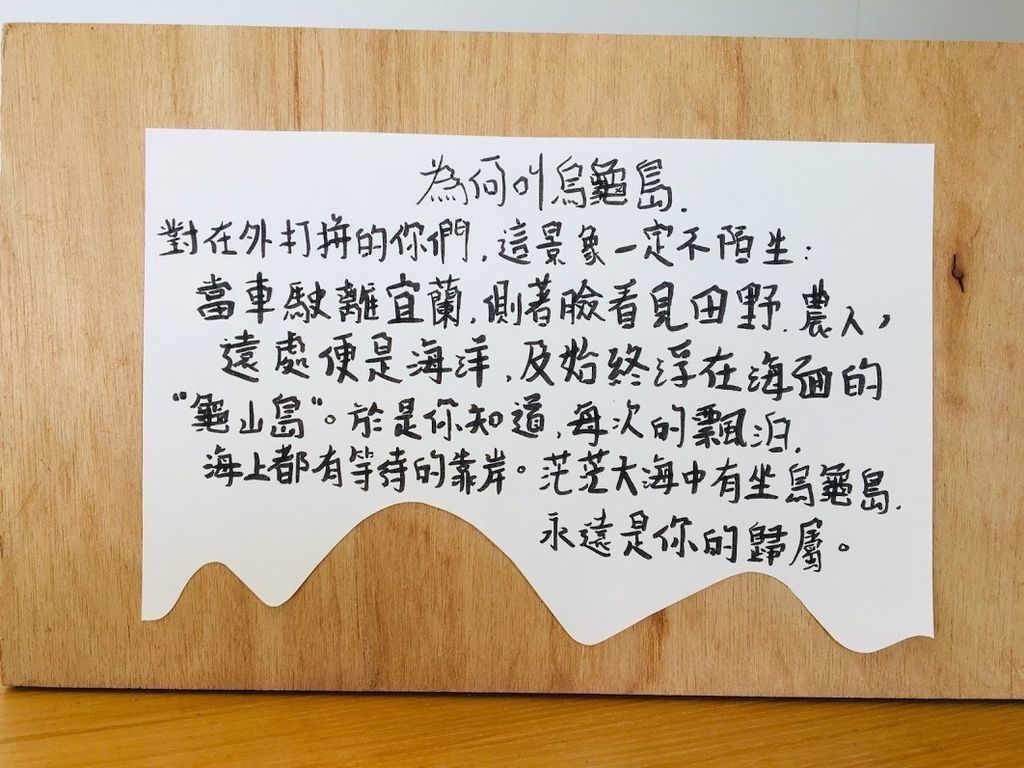 為何叫烏龜島.
對在外打拼的你們,這景象一定不陌生:
當車駛離宜蘭,側著臉看見田野.農人,
遠處便是海洋,及始終浮在海面的
“龜山島”。於是你知道,每次的飄泊,
海上都有等待的靠岸。茫茫大海中有坐烏龜島.
永遠是你的歸屬。